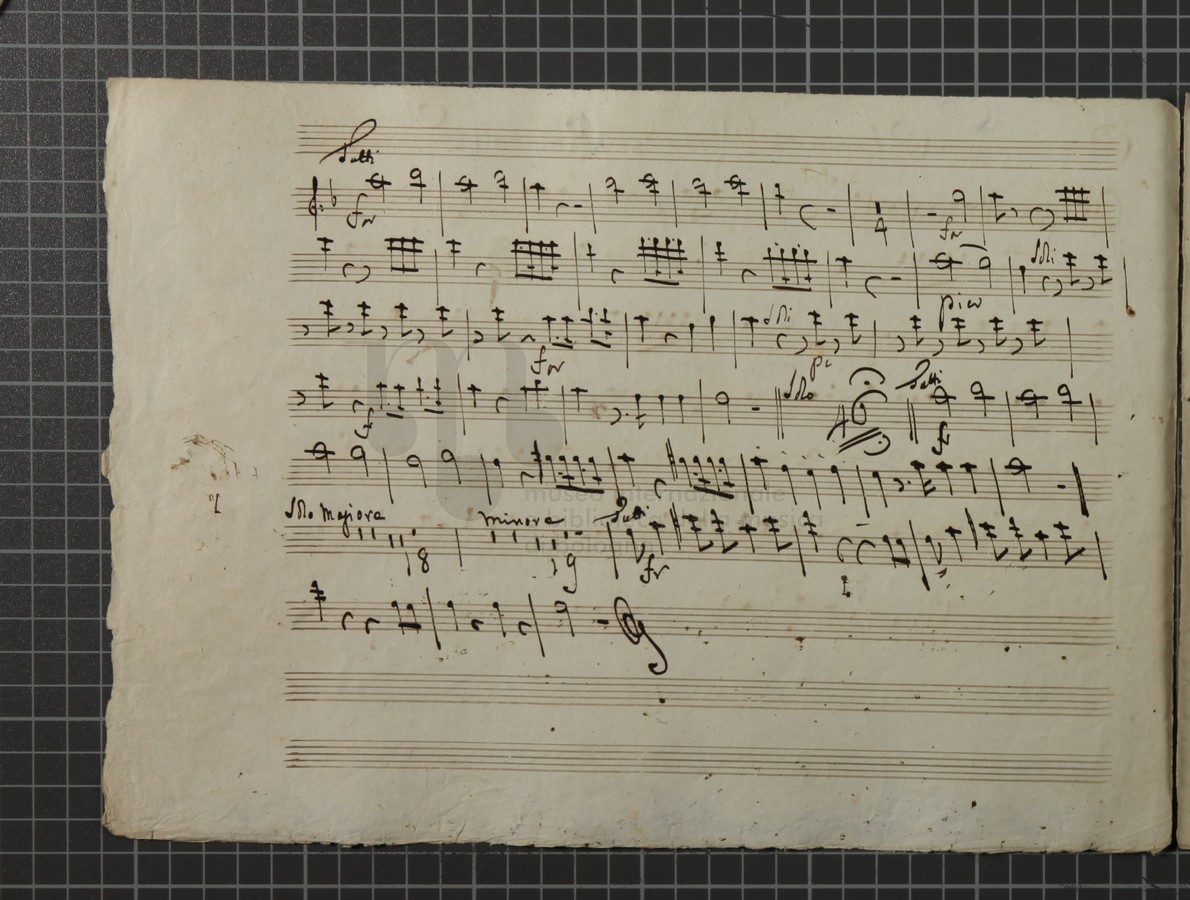 Tutti
fr
4
fr
Soli
pia
fr
Soli
pi
f
Solo
Tutti
f
Solo Majore
minore
Tutti
18
19
fr
museo internazionale
e biblioteca della musica
di bologna